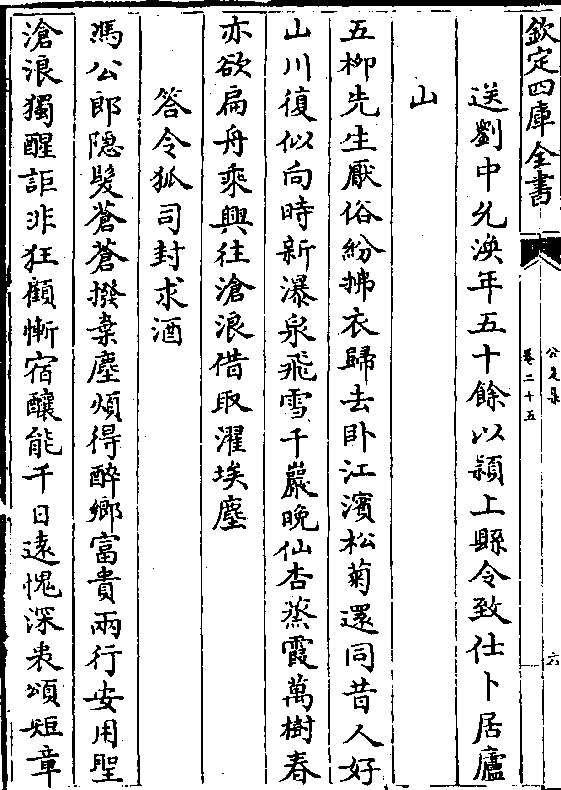 欽定四庫全書
公是集
卷二十五
六
送劉中允渙年五十餘以潁上縣令致仕卜居廬
山
五柳先生厭俗紛拂衣歸去卧江濱松菊還同昔人好
山川復似向時新瀑泉飛雪千巖晚仙杏蒸霞萬樹春
亦欲扁舟乘興往滄浪借取濯埃塵
答令狐司封求酒
馮公郎隠髮蒼蒼撥棄塵煩得醉鄉富貴兩行安用聖
滄浪獨醒詎非狂顧慚宿釀能千日遠愧深衷頌短章